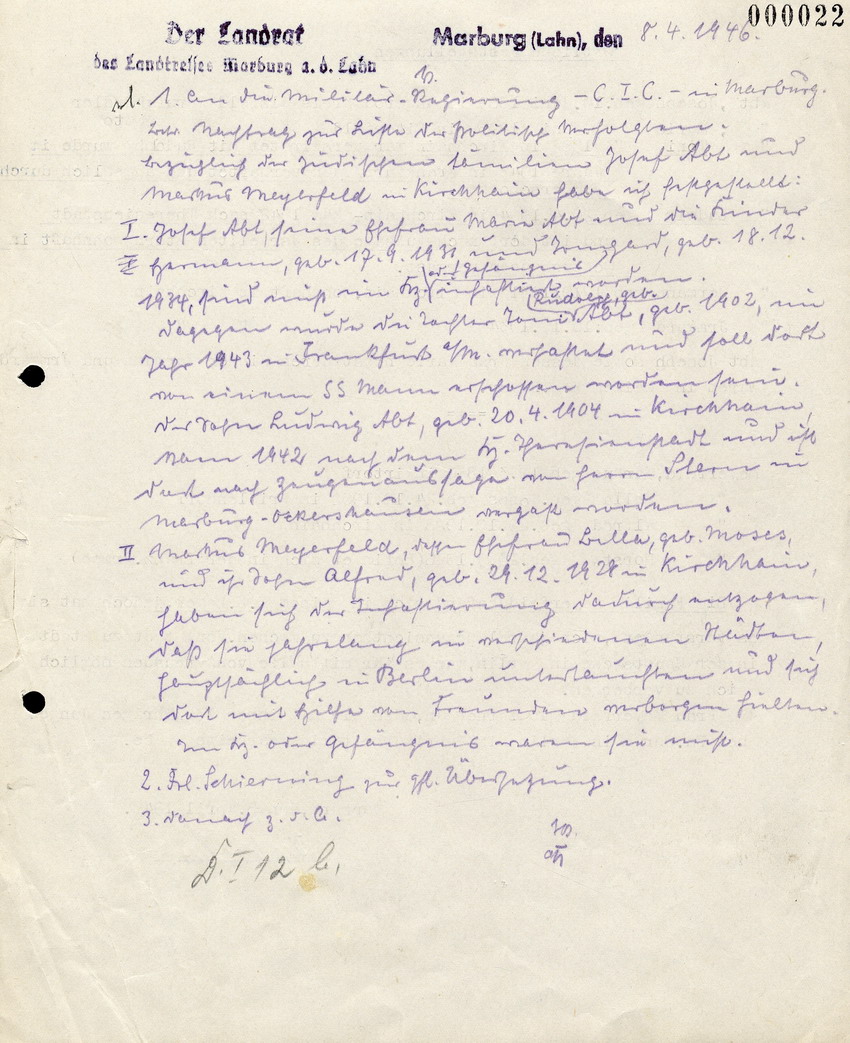 000022
Der Landrat
des Landkreises Marburg a. d. Lahn
Marburg (Lahn), den 8.4.1946.
1. An die Militär-Regierung - C.I.C. - in Marburg.
betr. Nachtrag zur Liste der politisch Verfolgten.
Bezüglich der jüdischen Familien Josef Abt und
Markus Meyerfeld in Kirchhain habe ich festgestellt:
I. Josef Abt, seine Ehefrau Maria Abt und die Kinder
Hermann, geb. 17.9.1931 und Irmgard, geb. 18.12.
1934, sind nicht im Kz. (oder Gefängnis) inhaftiert worden.
Dagegen wurde die Tochter Toni Rudolf, geb. Abt, geb. 1902, im
Jahr 1943 in Frankfurt a/M. verhaftet und soll dort
von einem SS Mann erschossen worden sein.
Der Sohn Ludwig Abt, geb. 20.4.1904 in Kirchhain,
kam 1942 nach dem Kz. Theresienstadt und ist
dort nach Zeugenaussage von Herrn Stern in
Marburg-Ockershausen vergast worden.
II Markus Meyerfeld, dessen Ehefrau Bella, geb. Moses,
und ihr Sohn Alfred, geb. 29.12.1927 in Kirchhain,
haben sich der Inhaftierung dadurch entzogen,
daß sie jahrelang in verschiedenen Städten,
hauptsächlich in Berlin untertauchten und sich
dort mit Hilfe von Freunden verborgen hielten.
Im Kz. oder Gefängnis waren sie nicht.
2. Frl. Schierning zur gfl. Übersetzung.
3. danach z. d. A.
D. I 12 b.